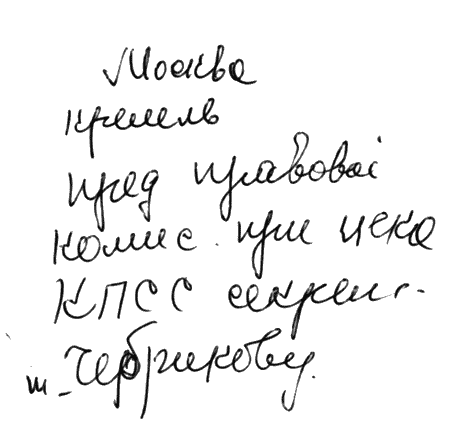 Москва
кремль
пред правовой
комис. при цека
КПСС секрет.
т. Чебрикову.